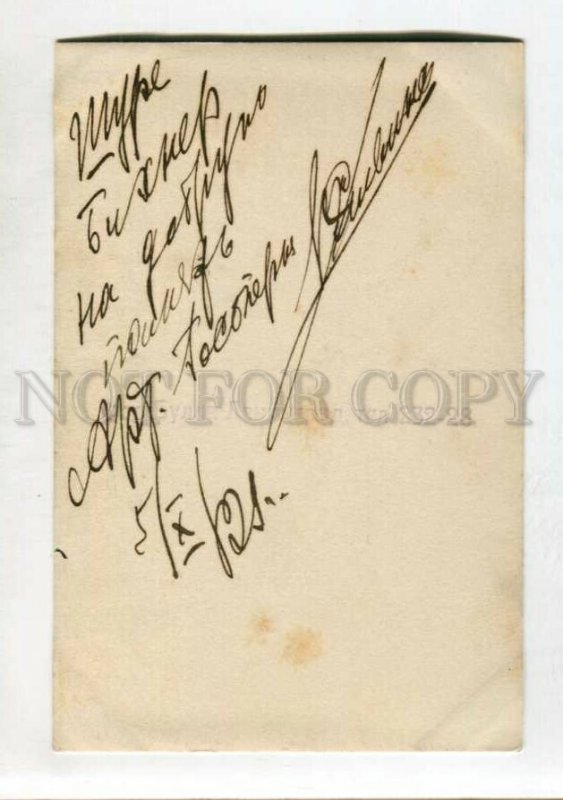 Шуре
Бихнер
на добрую
память
Арт. Госоперы
5/X/21..
NOT FOR COPY